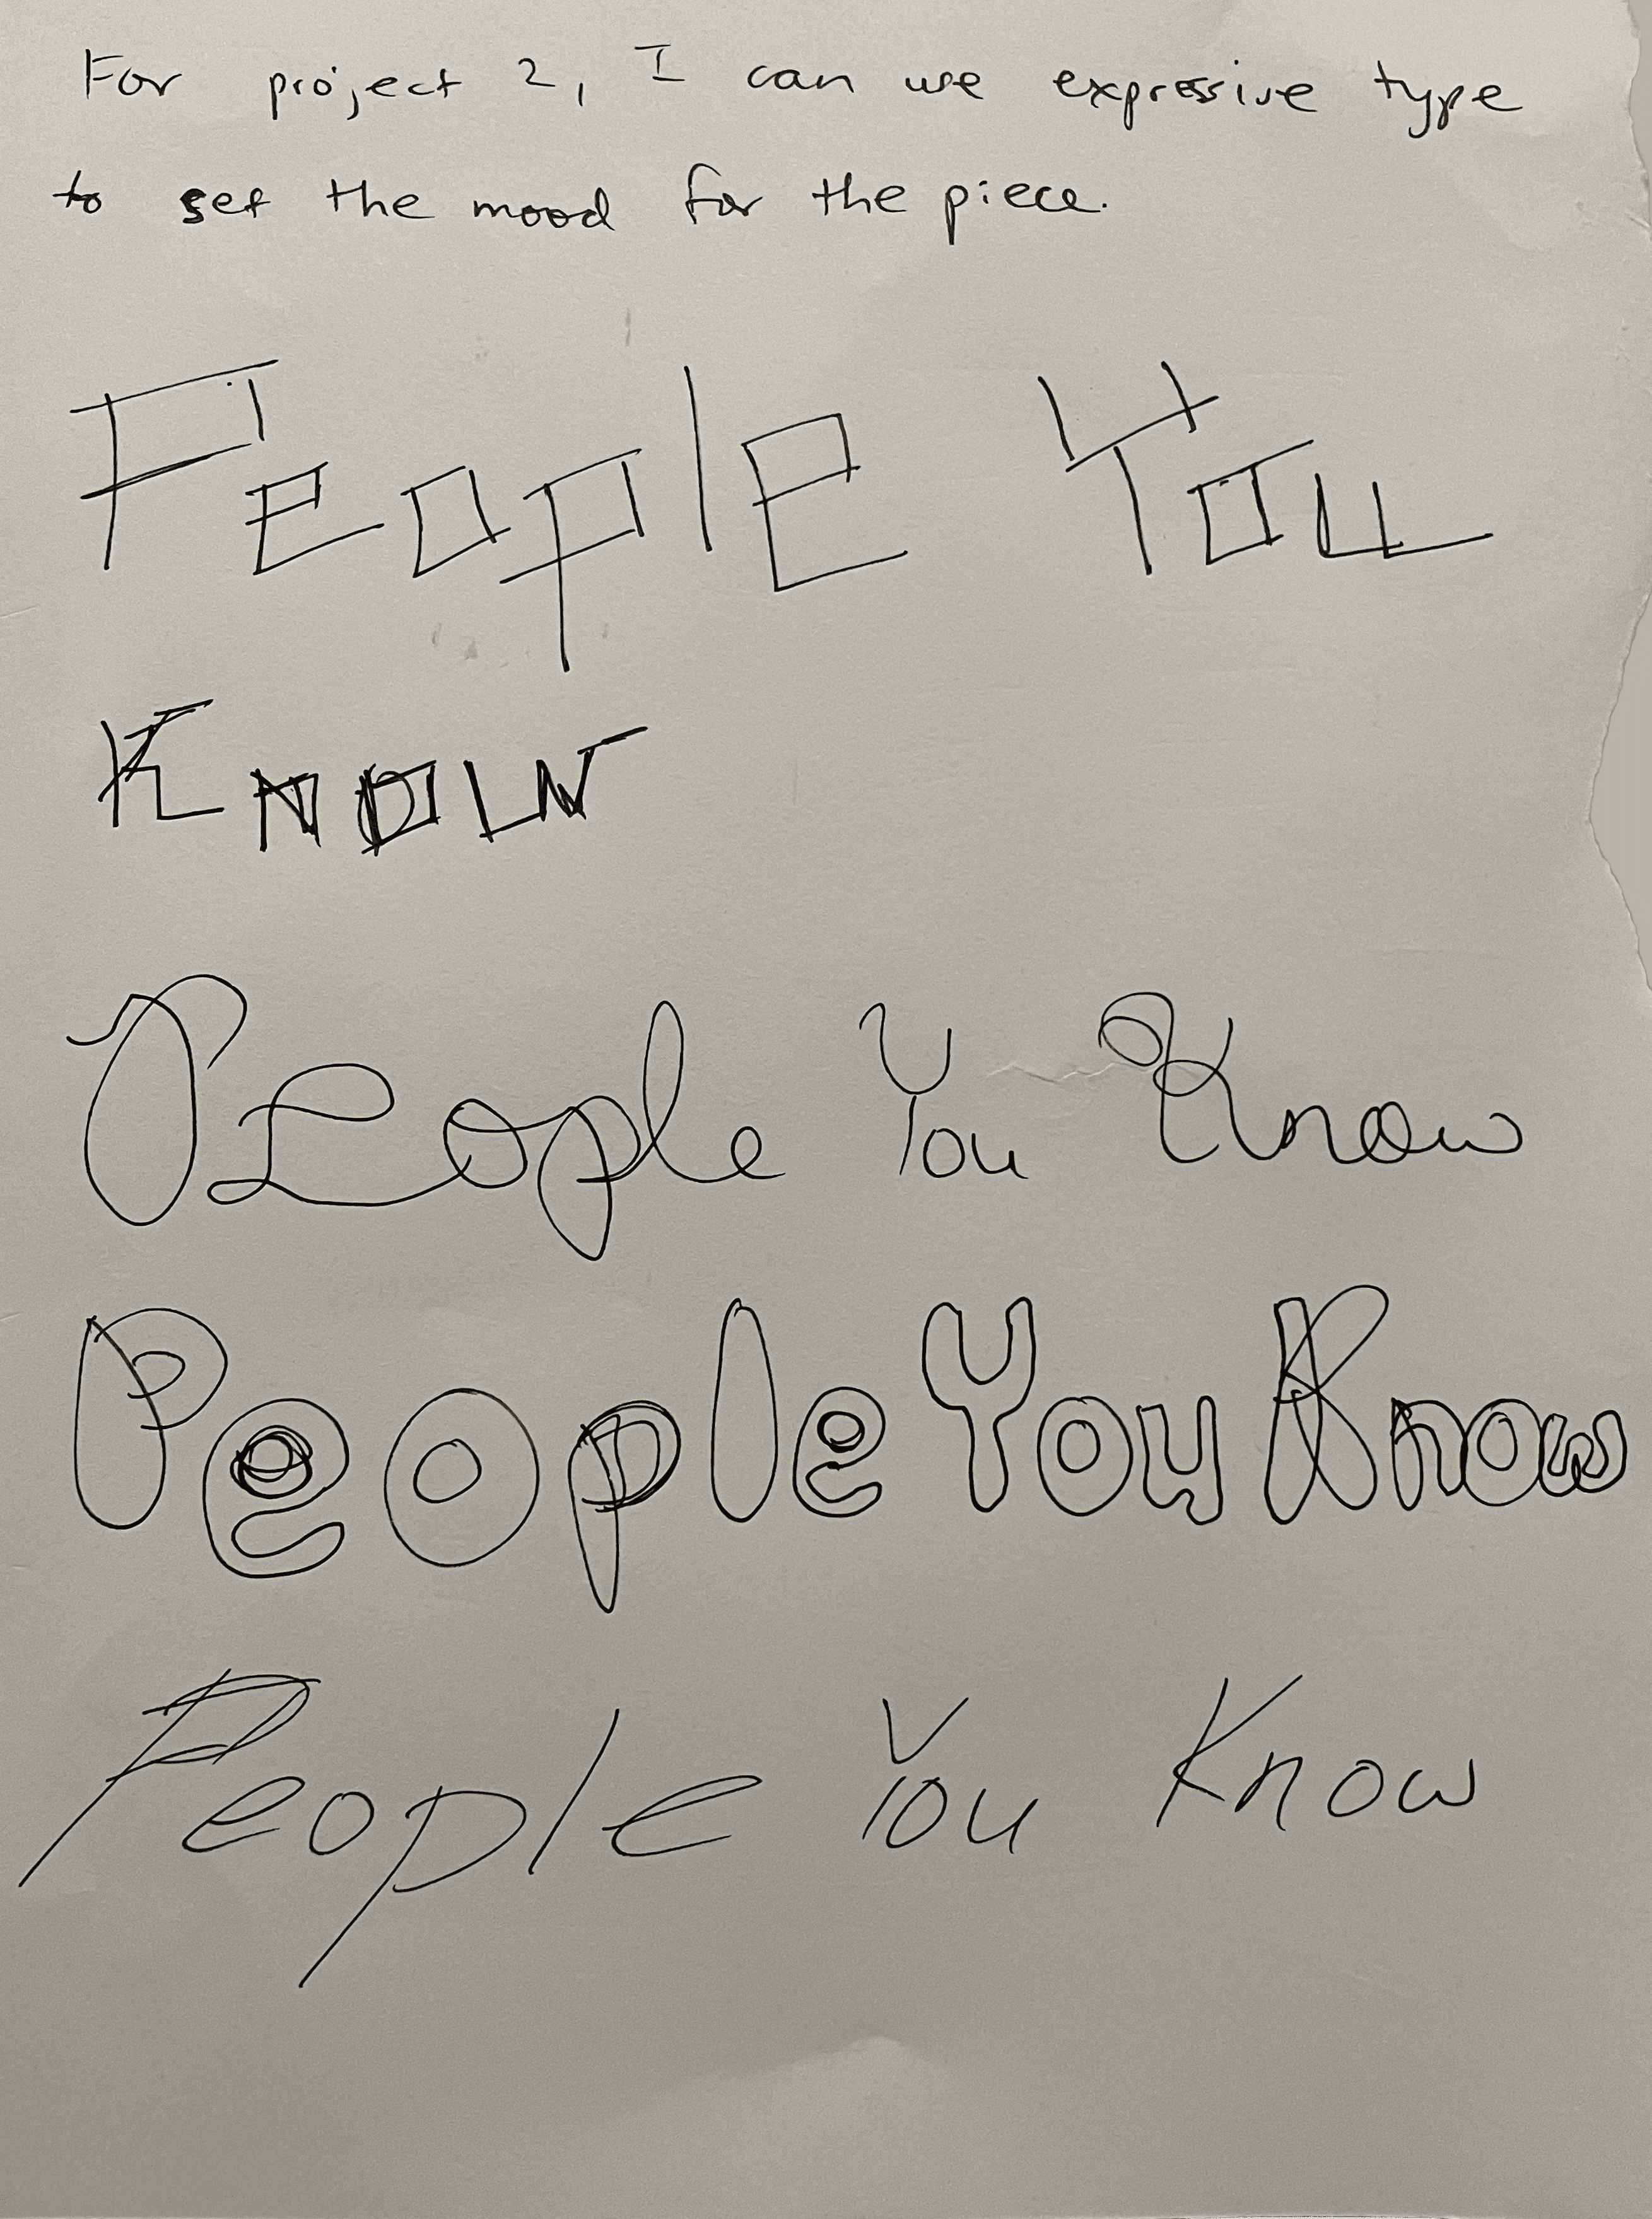 For project 2, I can use expressive type
to set the mood for the piece.
People You
Know
People You Know
People You Know
People You Know